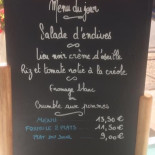 Menu du jour
Salade d'endives
Lieu noir crème d'oseille
Riz et tomate rotie à la créole
Fromage blanc
ou
Crumble aux pommes
MENU 13,50 €
FORMULE 2 PLATS 11,50 €
PLAT DU JOUR 9,00 €